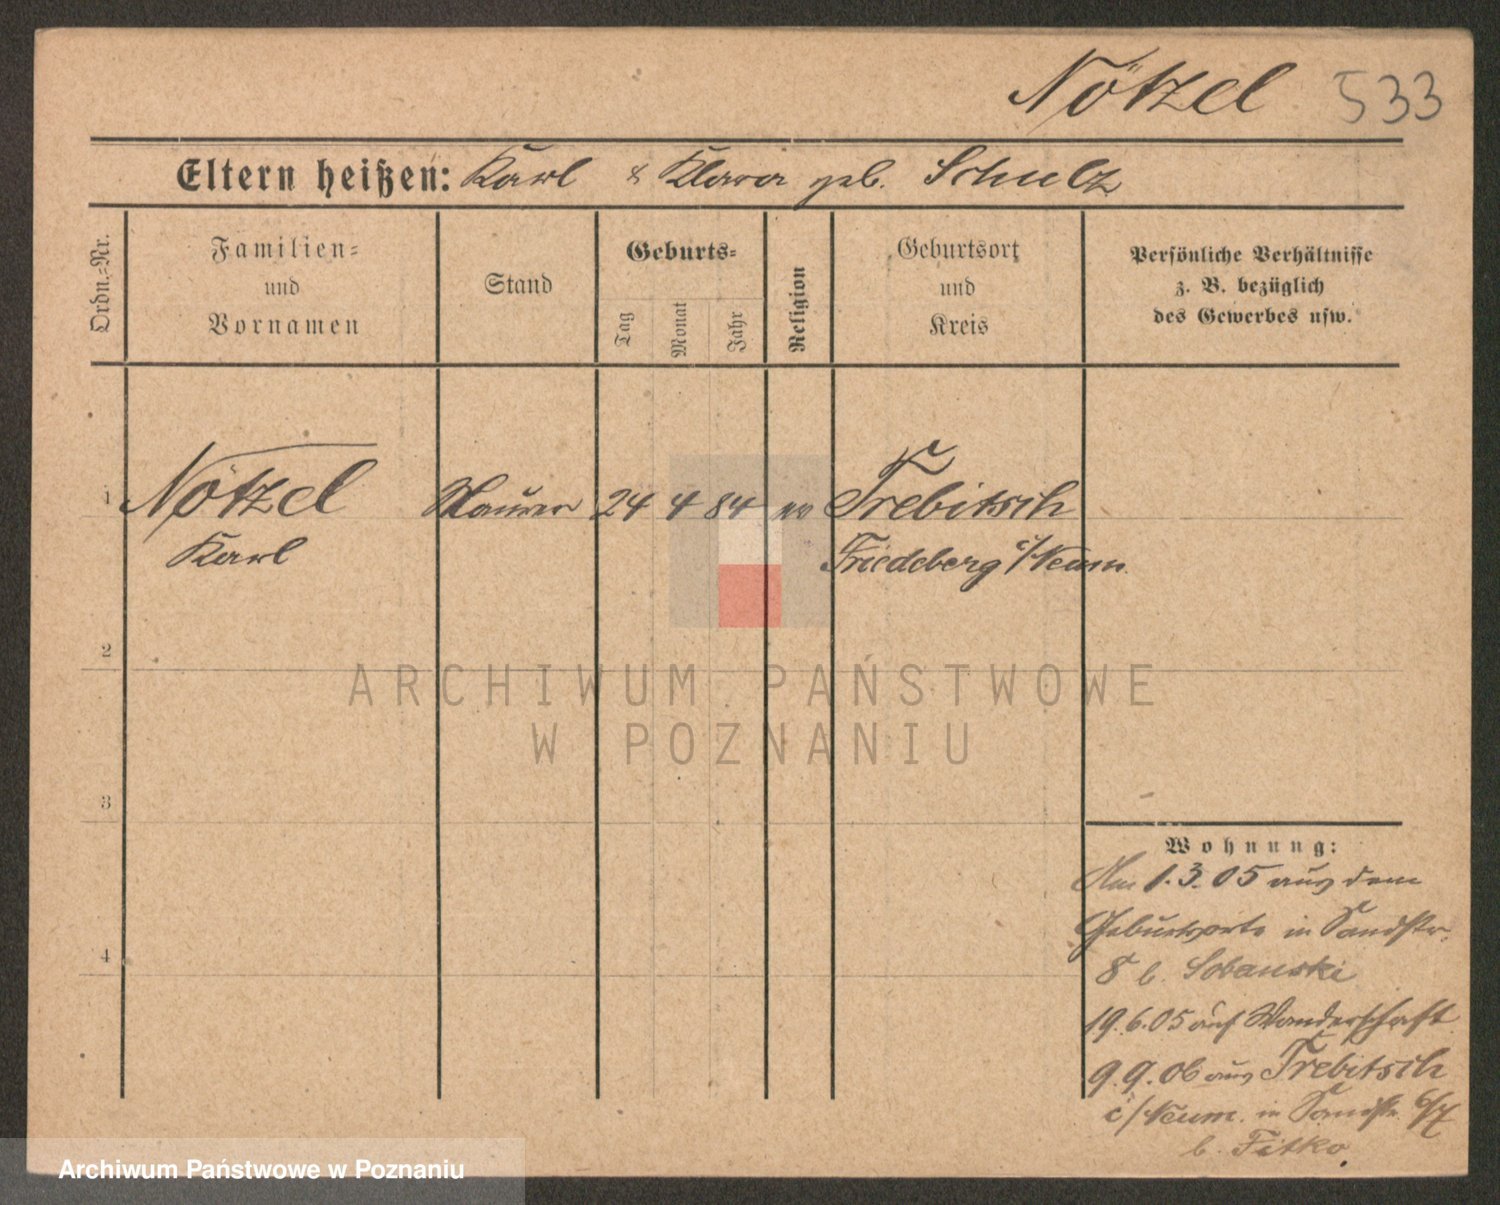 Nötzel 533
Eltern heißen: Karl & Klara geb. Schulz
Ordn.-Nr.
Familien-
und
Vornamen
Stand
Geburts-
Tag
Monat
Jahr
Religion
Geburtsort
und
Kreis
Persönliche Verhältnisse
z. B. bezüglich
des Gewerbes usw.
1 Nötzel Maurer 24 4 84 ev Trebitsch
Karl Friedeberg i/Neum.
2
3
4
ARCHIWUM PAŃSTWOWE
W POZNANIU
Wohnung:
Am 1.3.05 aus dem
Geburtsorte in Sandstr.
8 b. Sobanski
19.6.05 auf Wanderschaft
9.9.06 aus Trebitsch
i/Neum. in Sandstr. 6/7
b. Fitko.
Archiwum Państwowe w Poznaniu